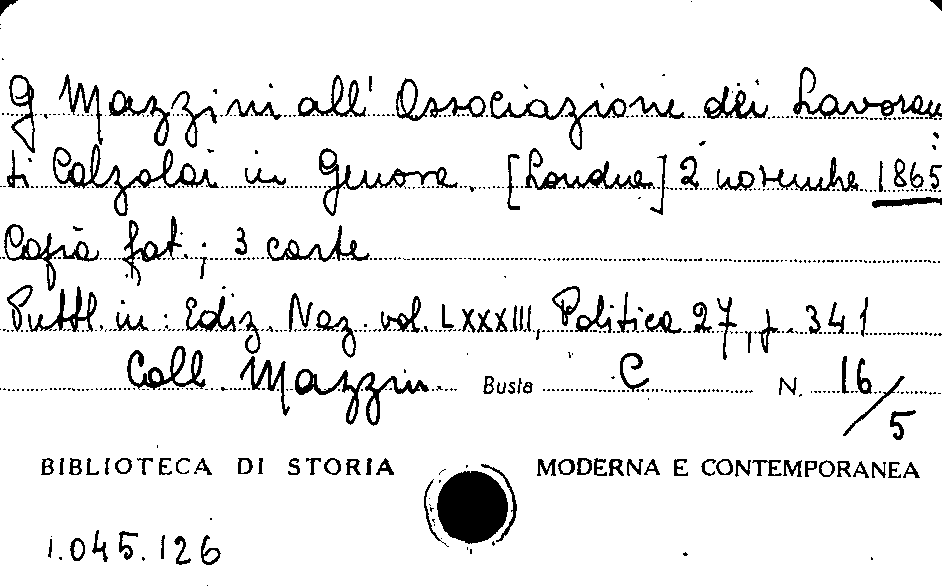 G. Mazzini all' Associazione dei Lavoran
ti Calzolai in Genova. [Londra] 2 novembre 1865
Copia fot.; 3 carte
Pubbl. in: Ediz. Naz. vol. LXXXIII, Politica 27, p. 341
Coll. Mazzini Busta C N. 16/5
BIBLIOTECA DI STORIA MODERNA E CONTEMPORANEA
1.045.126